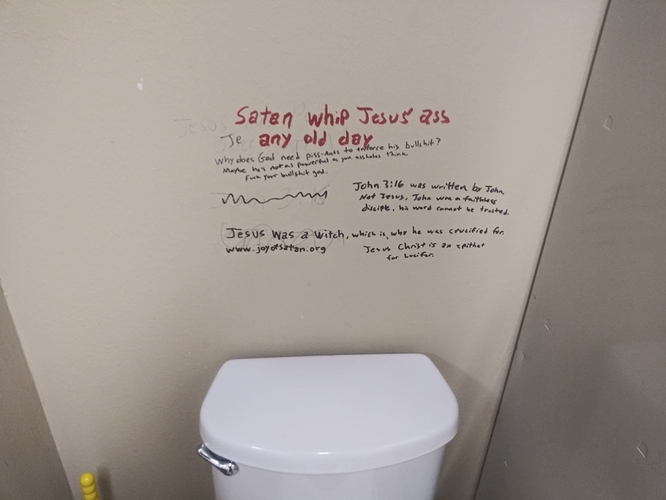 Jesus
Satan whip Jesus' ass
Je any old day
Why does God need piss-ants to enforce his bullshit?
Maybe he's not as powerful as you assholes think.
Fuck your bullshit god.
John 3:16 was written by John
Not Jesus, John was a faithless
disciple, his word cannot be trusted.
Jesus was a witch, which is why he was crucified for.
www.joyofsatan.org
Jesus Christ is an epithet
for Lucifer.